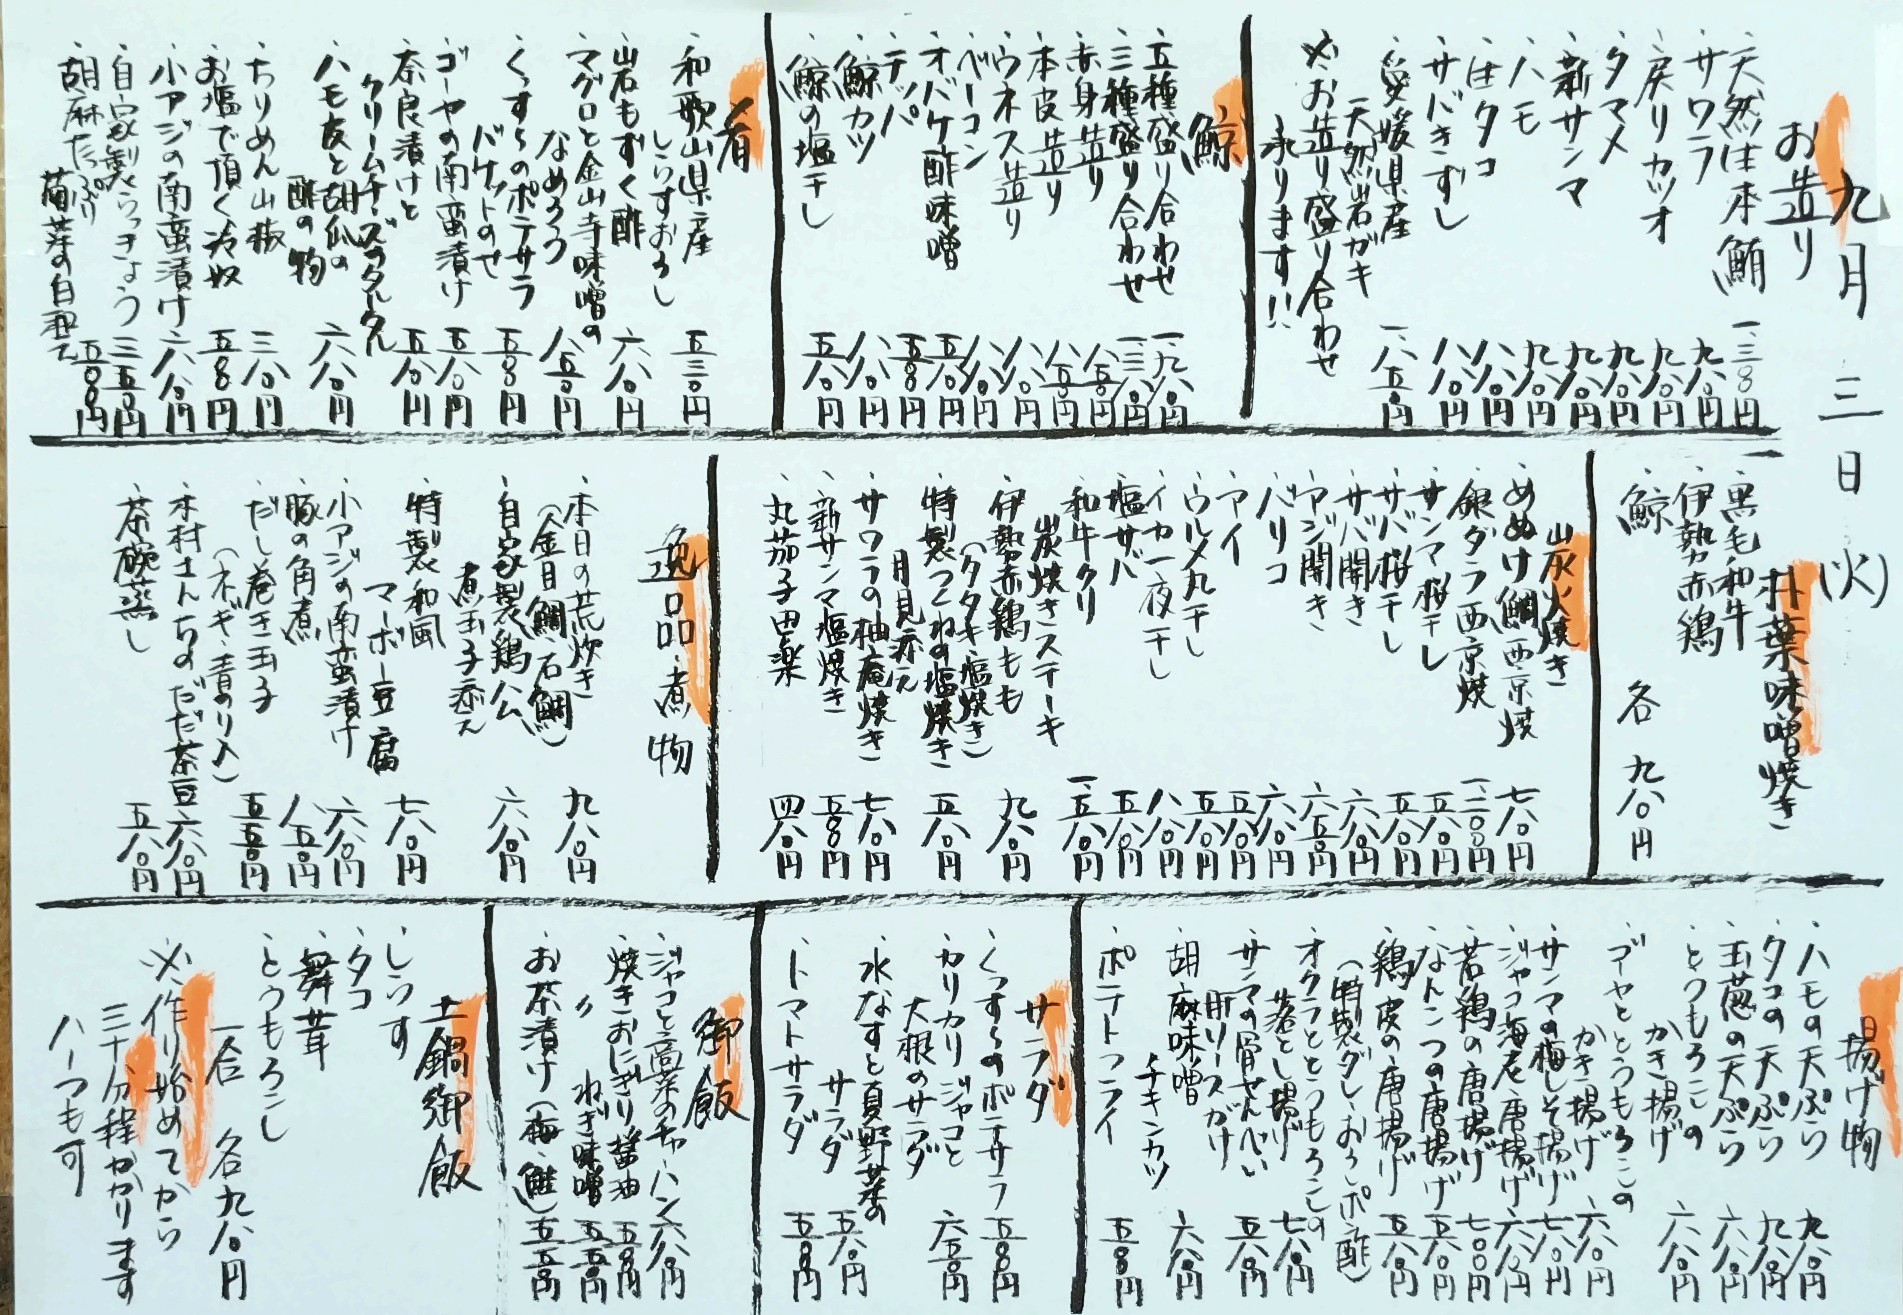 九月三日(火)
お造り
、天然生本鮪 一、三八〇円
、サワラ 九八〇円
、戻りカツオ 九八〇円
、タマメ 九八〇円
、新サンマ 九八〇円
、ハモ 九八〇円
、生タコ 八八〇円
、サバきずし 八八〇円
、愛媛県産
天然岩ガキ 一、八五〇円
※お造り盛り合わせ
承ります!!
鯨
、五種盛り合わせ 一、九八〇円
、三種盛り合わせ 一、三八〇円
、赤身造り 八五〇円
、本皮造り 八五〇円
、ウネス造り 八八〇円
、ベーコン 八八〇円
、オバケ酢味噌 五八〇円
、テッパ 五八〇円
、鯨カツ 八八〇円
、鯨の塩干し 五八〇円
肴
、和歌山県産
しらすおろし 五三〇円
、岩もずく酢 六八〇円
、マグロと金山寺味噌の
なめろう 八五〇円
、くずらのポテサラ
バケットのせ 五八〇円
、ゴーヤの南蛮漬け 五八〇円
、奈良漬けと
クリームチーズのタルタル 五八〇円
、ハモ皮と胡瓜の
酢の物 六八〇円
、ちりめん山椒 三八〇円
、お塩で頂く冷奴 五八〇円
、小アジの南蛮漬け 六八〇円
、自家製らっきょう 三五〇円
、胡麻たっぷり
菊芽の白和え 五八〇円
朴葉味噌焼き
、黒毛和牛
、伊勢赤鶏
、鯨
各九八〇円
炭火焼き
、めぬけ鯛西京焼 七八〇円
、銀ダラ西京焼 一、二〇〇円
、サンマ桜干し 五八〇円
、サバ桜干し 五八〇円
、サバ開き 六八〇円
、アジ開き 六五〇円
、バリコ 六八〇円
、アイ 五八〇円
、ウルメ丸干し 五八〇円
、イカ一夜干し 八八〇円
、塩サバ 五八〇円
、和牛クリ
炭焼きステーキ 一、五八〇円
、伊勢赤鶏もも
(タタキ・塩焼き) 九八〇円
、特製つくねの塩焼き
月見添え 五八〇円
、サワラの柚庵焼き 七八〇円
、新サンマ塩焼き 五八〇円
、丸茄子田楽 四八〇円
逸品・煮物
、本日の荒炊き
(金目鯛・石鯛) 九八〇円
、自家製鶏ハム
煮玉子添え 六八〇円
、特製和風
マーボー豆腐 七八〇円
、小アジの南蛮漬け 六八〇円
、豚の角煮 八五〇円
、だし巻き玉子
(ネギ・青のり入) 五五〇円
、木村さんちのだだ茶豆 六八〇円
、茶碗蒸し 五八〇円
揚げ物
、ハモの天ぷら 九八〇円
、タコの天ぷら 九八〇円
、玉葱の天ぷら 六八〇円
、とうもろこしの
かき揚げ 六八〇円
、ゴーヤととうもろこしの
かき揚げ 六八〇円
、サンマの梅しそ揚げ 七八〇円
、ジャコ海老唐揚げ 六八〇円
、若鶏の唐揚げ 七〇〇円
、なんこつの唐揚げ 五八〇円
、鶏皮の唐揚げ 五八〇円
(特製ダレ・おろしポン酢)
、オクラととうもろこしの
落とし揚げ 七八〇円
、サンマの骨せんべい
肝ソースがけ 五八〇円
、胡麻味噌
チキンカツ 六八〇円
、ポテトフライ 五八〇円
サラダ
、くずらのポテサラ 五八〇円
、カリカリジャコと
大根のサラダ 六五〇円
、水なすと夏野菜の
サラダ 五八〇円
、トマトサラダ 五八〇円
御飯
、ジャコと高菜のチャーハン 六八〇円
、焼きおにぎり醤油 五八〇円
〃 ねぎ味噌 五五〇円
、お茶漬け(梅・鮭) 五五〇円
土鍋御飯
、しらす
、タコ
、舞茸
、とうもろこし
一合 各九八〇円
※作り始めてから
三十分程かかります
ハーフも可